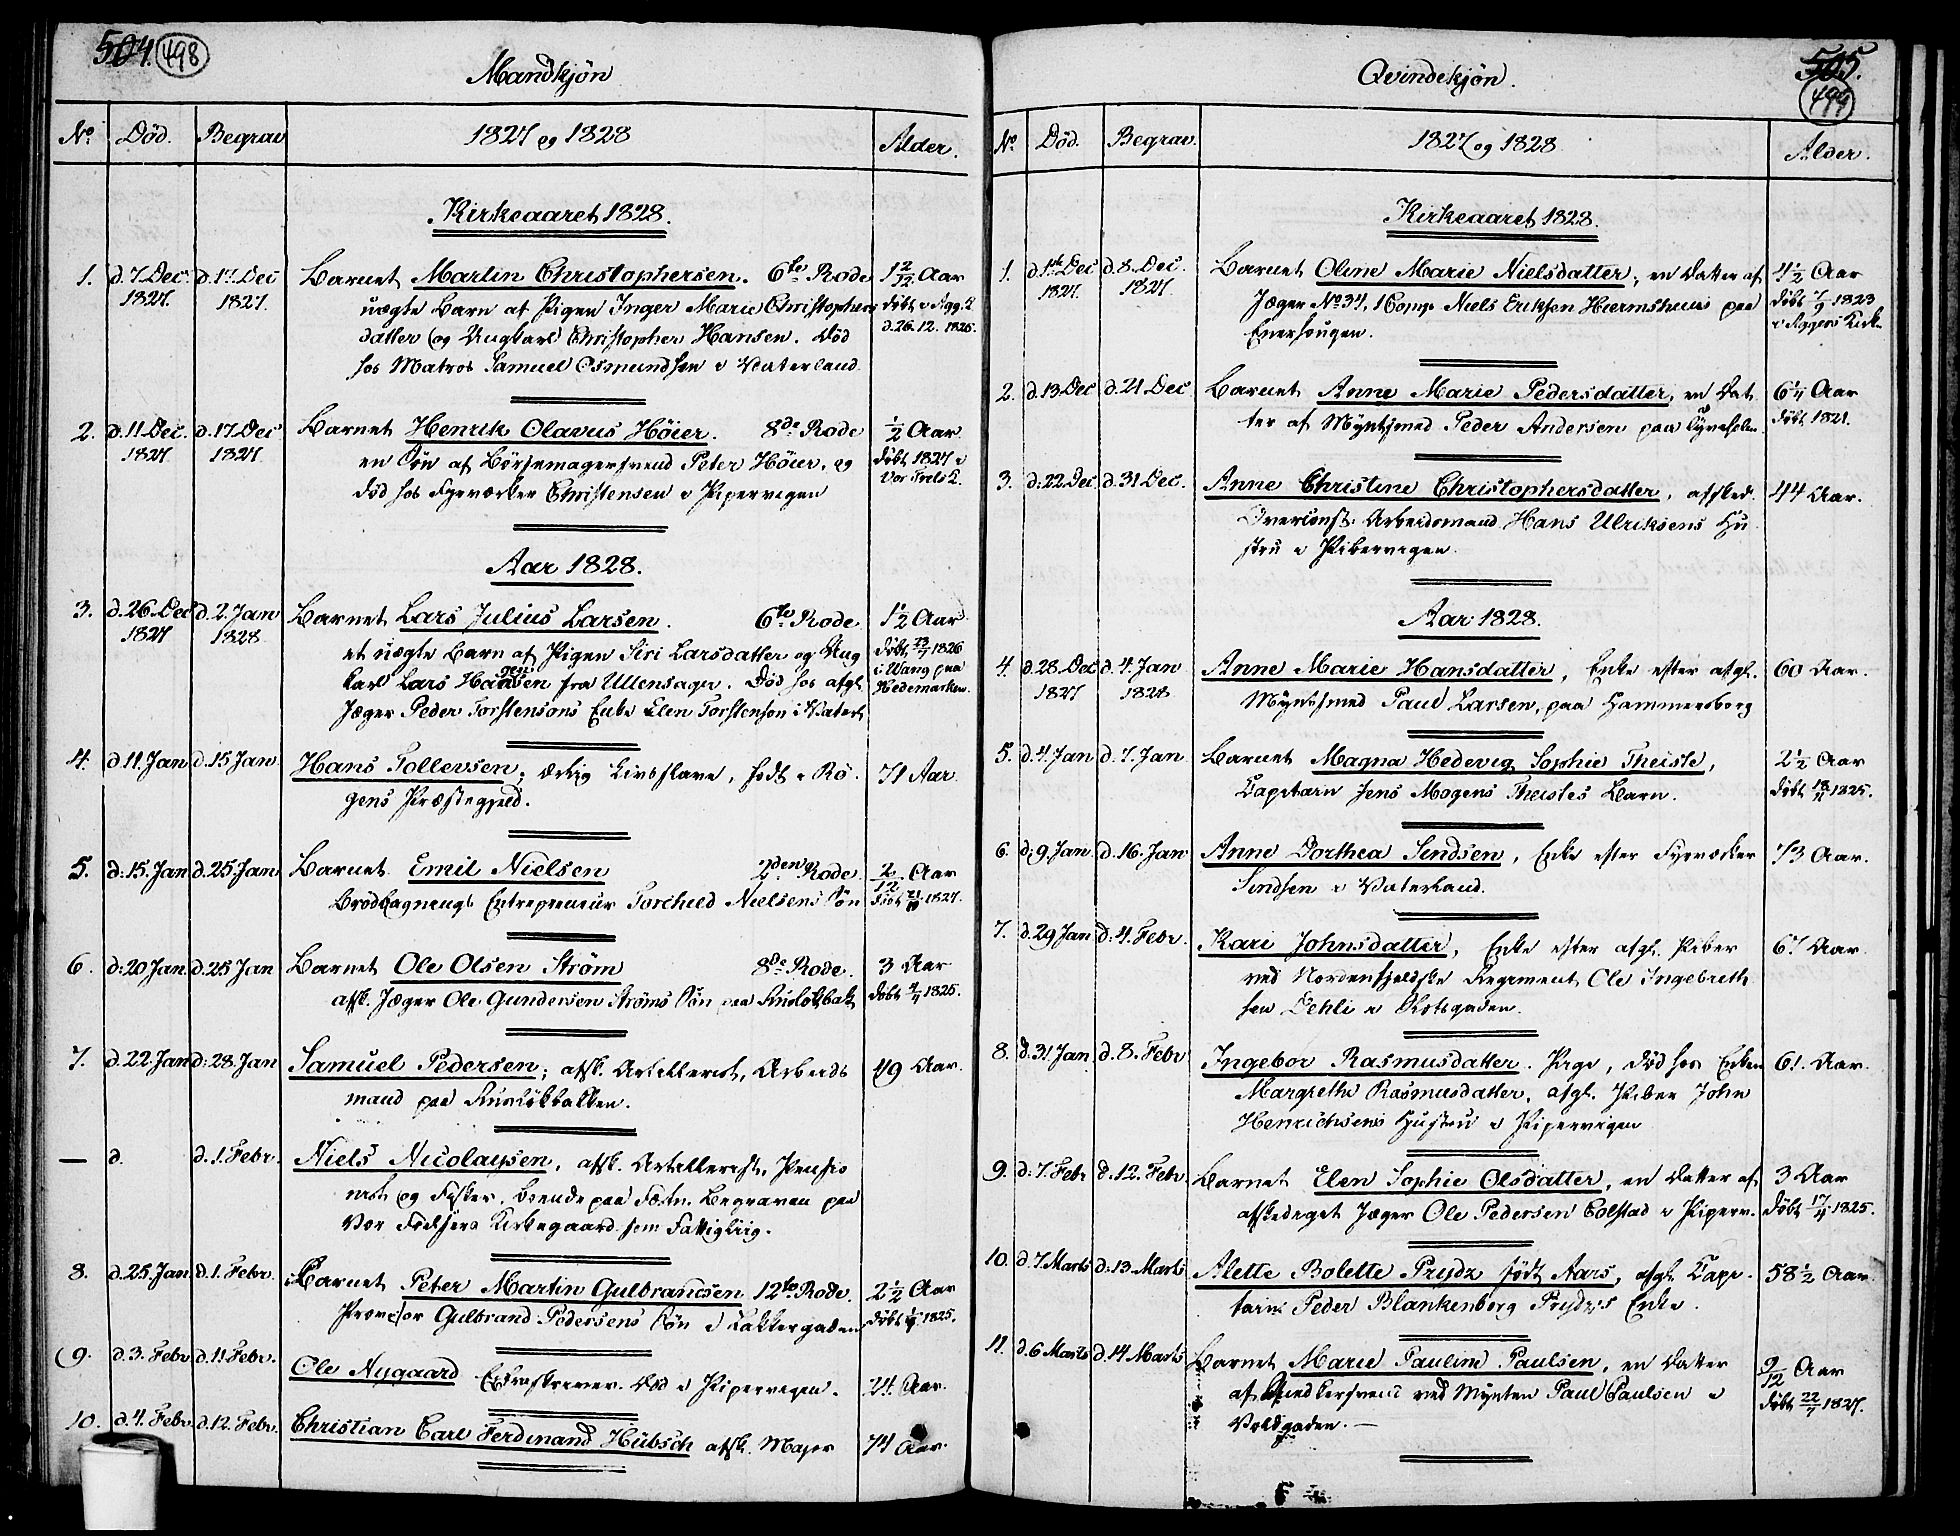 504. 498
Mandkjøn
No. Død. Begrav 1827 og 1828 Alder.
Kirkeaaret 1828.
1. d. 7 Dec. 1827. d. 17. Dec 1827. Barnet Martin Christophersen. 6te Rode 1 2/12 Aar
uægte Barn af Pigen Inger Marie Christophers døbt i Agg. K
datter og Ungkarl Christopher Hansen. Død d. 26. 12. 1826.
hos Matros Samuel Osmundsen i Vaterland.
2. d. 11. Dec. 1827 d. 17. Dec 1827. Barnet Henrik Olavus Höier. 8de Rode 1/2 Aar
en Søn af Børsemagersvend Peter Höier, og døbt 1827 i
død hos Fyrverker Christensen i Pipervigen Vor Frels K.
Aar 1828.
3. d. 26. Dec 1827 d. 2. Jan 1828 Barnet Lars Julius Larsen. 6te Rode. 1 1/2 Aar
et uægte Barn af Pigen Siri Larsdatter og Ung døbt 1826
karl Lars Hansen fra Ullensager. Død hos afgl. i Wang paa
Jæger Peder Torstensons Enke Elen Torstenson i Vaterl Hedemarken.
4. d. 11. Jan d. 15 Jan Hans Tollevsen, ærlig Livsslave, født i Rö- 71 Aar
gens Præstegjeld.
5. d. 15. Jan d. 25. Jan Barnet Emil Nielsen 2den Rode. 2/12 Aar
Brødbagnings Entrepreneur Torchild Nielsens Søn døbt 21/10 1827.
6. d. 20 Jan d. 25 Jan Barnet Ole Olsen Ström 8de Rode. 3 Aar
afsk. Jæger Ole Gundersen Ströms Søn paa Ruseløkbak døbt 1825.
7. d. 22. Jan d. 28. Jan Samuel Pedersen, afsk. Artillerist, Arbeids 49 Aar.
mand paa Ruseløkbakken.
— d. d. 1. Febr. Niels Nicolaysen, afsk. Artillerist, Pensio
nist og Fisker, boende paa Fæstn. Begraven paa
Vor Frelsers Kirkegaard som Fattiglig.
8. d. 25. Jan d. 1. Febr. Barnet Peter Martin Gulbrandsen 12te Rode. 2 1/2 Aar
Provisor Gulbrand Pedersens Søn i Rakkergaden døbt 1825.
9. d. 3. Febr d. 11. Febr. Ole Nygaard Extraskriver. Død i Pipervigen. 24 Aar.
10. d. 4. Febr. d. 12. Febr. Christian Carl Ferdinand Hübsch afsk. Major 74 Aar.
505. 499
Qvindekjøn.
No. Død. Begrav. 1827 og 1828 Alder.
Kirkeaaret 1828.
1. d. 1st Dec 1827. d. 8. Dec. 1827. Barnet Oline Marie Nielsdatter, en Datter af 4 1/2 Aar
Jæger No 34, 1 Comp Niels Eriksen paa døbt 1823
Enerhougen. i Aggers Kirk
2. d. 13 Dec d. 21 Dec Barnet Anne Marie Pedersdatter, en Dat 6 1/4 Aar
ter af Myntsmed Peder Andersen paa Tyveholm døbt 1821.
3. d. 22. Dec d. 31 Dec. Anne Christine Christophersdatter, afsked. 44 Aar.
Overconst. Arbeidsmand Hans Ulriksens Hu
stru i Pibervigen.
Aar 1828.
4. d. 28. Dec 1827 d. 4. Jan 1828 Anne Marie Hansdatter, Enke efter afgl. 60 Aar.
Myntsmed Paul Larsen, paa Hammersborg
5. d. 4. Jan d. 7. Jan Barnet Magna Hedevig Sophie Theiste, 2 1/2 Aar
Capitain Jens Mogens Theistes Barn. døbt 1825.
6. d. 9. Jan d. 16. Jan Anne Dorthea Sendsen, Enke efter Fyrverker 73 Aar.
Sendsen i Vaterland.
7. d. 29 Jan d. 4. Febr. Kari Johnsdatter, Enke efter afgl. Piber 67 Aar
ved Nordenfjeldske Regiment Ole Ingebreth
sen Dehli i
8. d. 31 Jan d. 8. Febr Ingebor Rasmusdatter. Pige, død hos Enken 61. Aar.
Margrethe Rasmusdatter, afgl. Piber John
Henrichsens Hustru i Pipervigen
9. d. 7. Febr d. 12. Febr Barnet Elen Sophie Olsdatter, en Datter af 3 Aar
afskediget Jæger Ole Pedersen Colstad i Piperv. døbt 1825.
10. d. 7. Marts d. 13. Marts Alette Bolette Prydz født Aars, afgl. Capi- 58 1/2 Aar.
tain Peder Blankenborg Prydz's Enke.
11. d. 6 Marts d. 14 Marts Barnet Marie Pauline Paulsen, en Datter 9/12 Aar
af Snedkersvend ved Mynten Paul Paulsen i døbt 22/7 1827.
Voldgaden. —